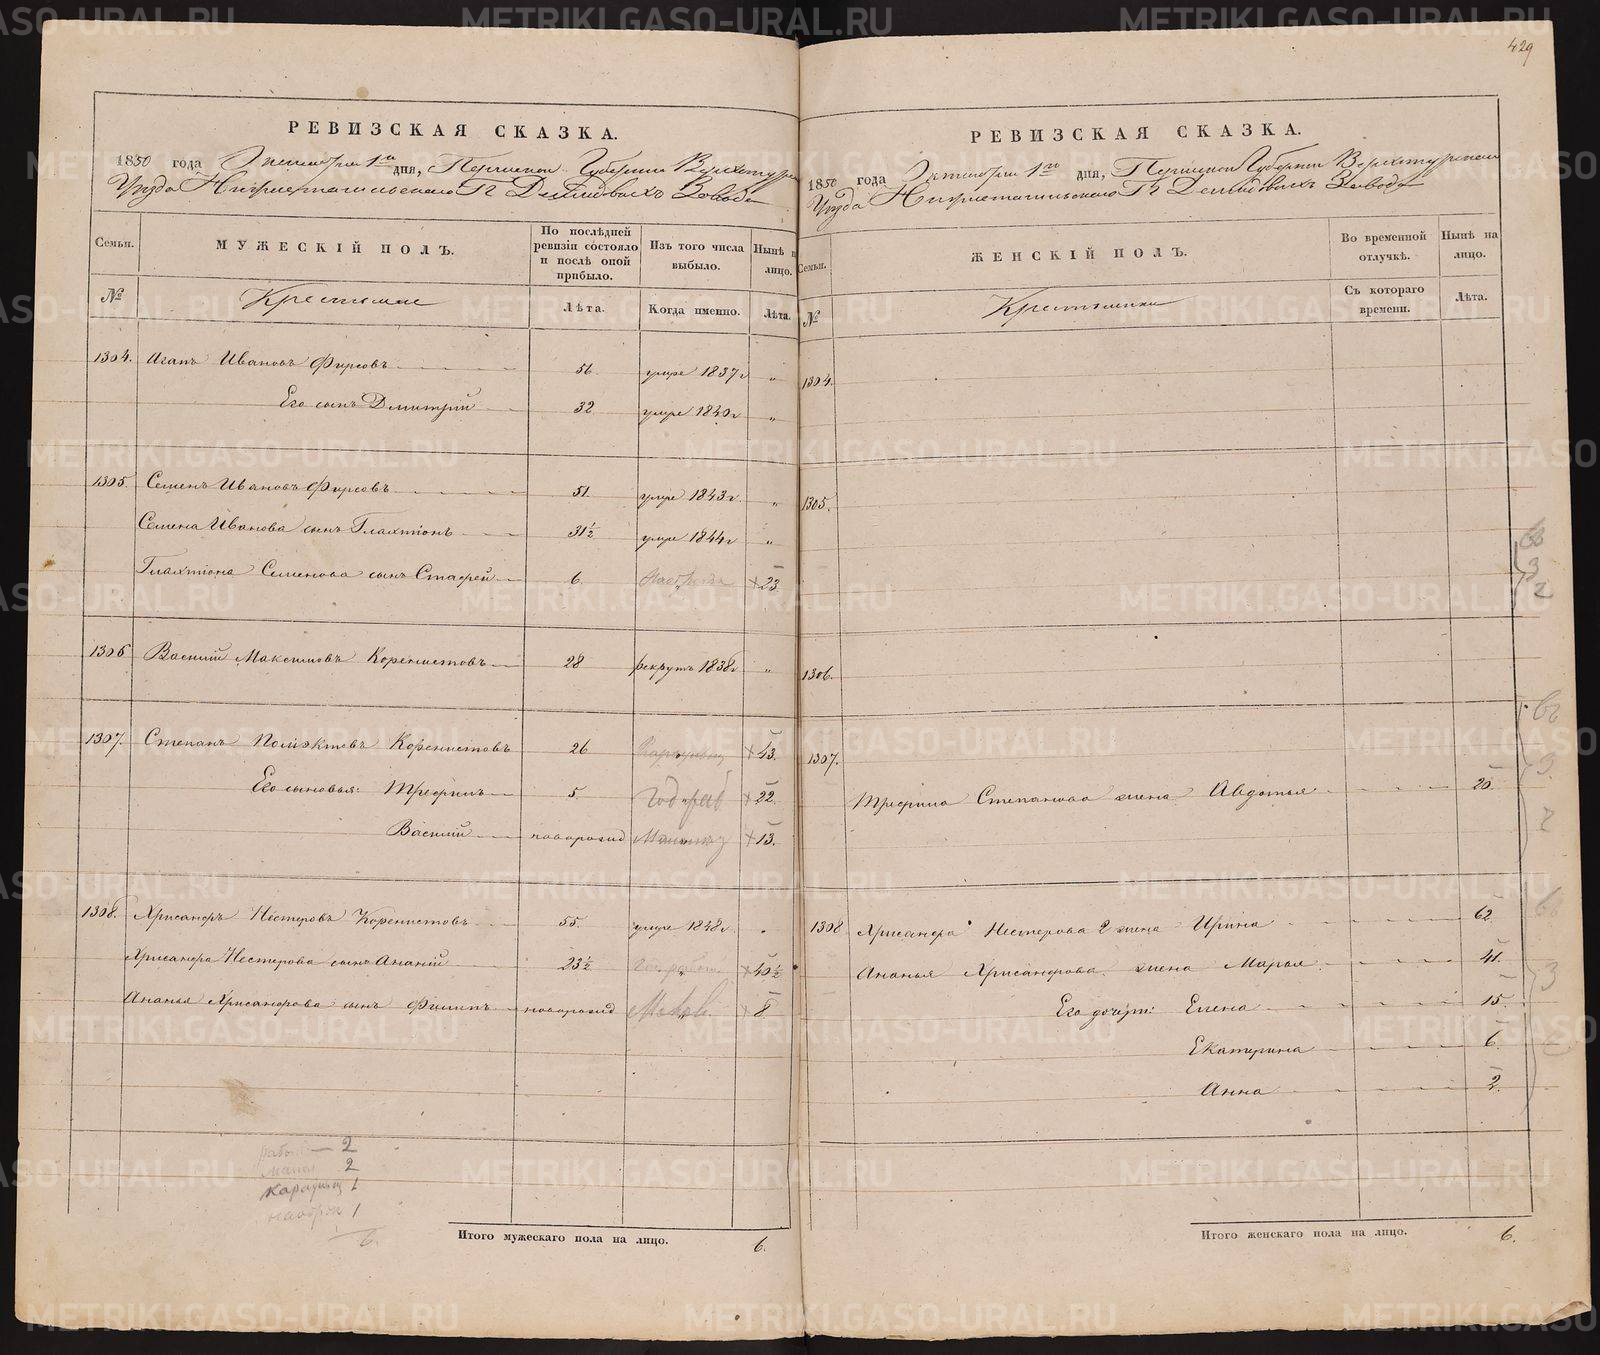 429
РЕВИЗСКАЯ СКАЗКА.
1850 года Октября 1го дня, Пермской Губернии Верхотурска
Уезда Нижнетагильскаго Гг Демидовыхъ Завода
Семьи.
МУЖЕСКІЙ ПОЛЪ.
По послѣдней ревизіи состояло и послѣ оной прибыло.
Изъ того числа выбыло.
Нынѣ на лицо.
№
Крестьяне
Лѣта.
Когда именно.
Лѣта.
1304. Агапъ Ивановъ Фирсовъ 56 умре 1837 г "
Его сынъ Дмитрій 32 умре 1840 г "
1305. Семенъ Ивановъ Фирсовъ 51. умре 1843 г "
Семена Иванова сынъ Галахтіонъ 31½ умре 1844 г "
Галахтіона Семенова сынъ Стафей 6. 23
1306 Василій Максимовъ Коренистовъ 28 рекрутъ 1838 г "
1307. Степанъ Поліэктовъ Коренистовъ 26 43.
Его сыновья: Трефилъ 5. 22.
Василій новорожд 13.
1308. Хрисанфъ Нестеровъ Коренистовъ 55. умре 1848 г
Хрисанфа Нестерова сынъ Ананій 23½ 40½
Ананья Хрисанфова сынъ Филипъ новорожд 8
работ — 2
2
караульщ 1
1
6.
Итого мужескаго пола на лицо. 6.
РЕВИЗСКАЯ СКАЗКА.
1850 года Октября 1го дня, Пермской Губерніи Верхотурскаго
Уезда Нижнетагильскаго Гг Демидовыхъ Завода
Семьи.
ЖЕНСКІЙ ПОЛЪ.
Во временной отлучкѣ.
Нынѣ на лицо.
№
Крестьянки
Съ котораго времени.
Лѣта.
1304.
1305.
1306.
1307.
Трефила Степанова жена Авдотья 20
1308 Хрисанфа Нестерова 2 жена Ирина 62
Ананья Хрисанфова жена Марья 41.
Его дочери: Елена 15.
Екатерина 6
Анна 2.
Итого женскаго пола на лицо. 6.
METRIKI.GASO-URAL.RU